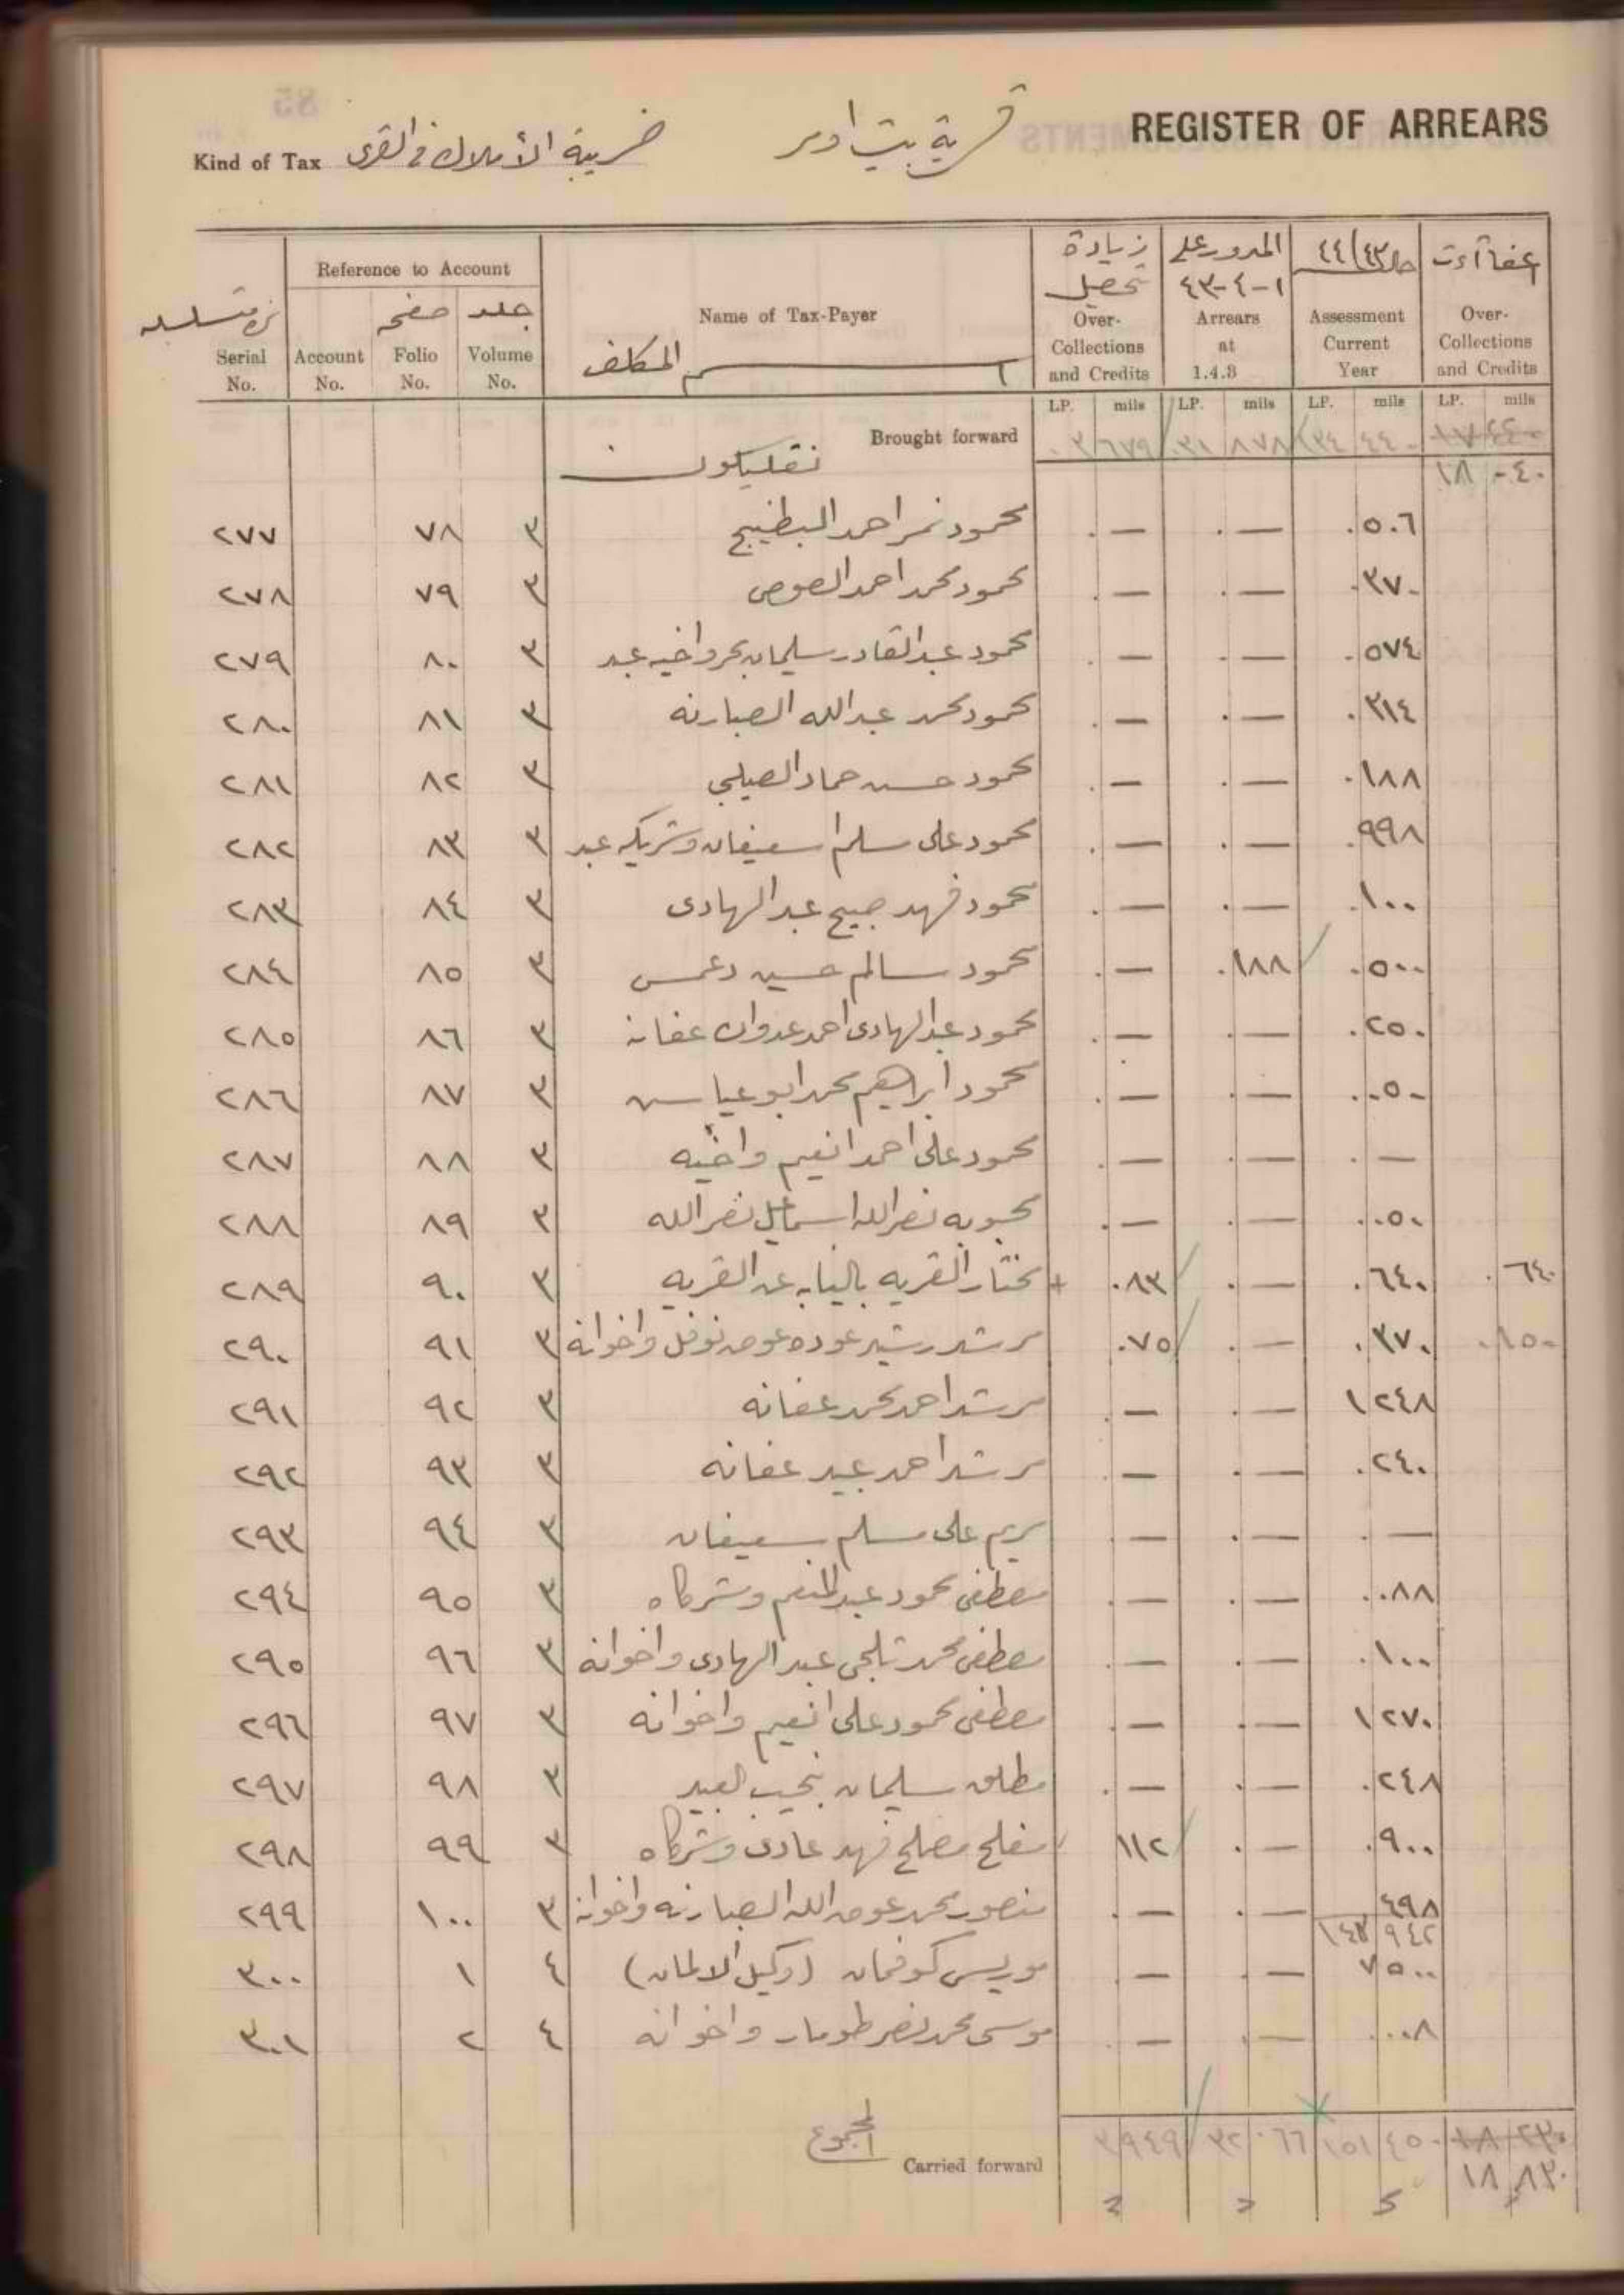 REGISTER OF ARREARS
قرية بيت اومر
Kind of Tax ضريبة الأملاك في القرى
Serial No. نمرة متسلسله
Reference to Account
Account No.
Folio No. صفحه
Volume No. جلد
Name of Tax-Payer اسم المكلف
زيادة تحصيل Over-Collections and Credits
المدور على ١-٤-٤٣ Arrears at 1.4.3
٤٤/٤٣ Assessment Current Year
عفاآت Over-Collections and Credits
LP. mils LP. mils LP. mils LP. mils
Brought forward ٣ ٦٧٩ ٣١ ٨٧٨ ١٣٤ ٤٤٠
١٨ ٠٤٠
٢٧٧ ٧٨ ٣ محمود نمر احمد البطنيجي . — . — . ٥٠٦
٢٧٨ ٧٩ ٣ محمود محمد احمد الصوص . — . — . ٣٧٠
٢٧٩ ٨٠ ٣ محمود عبد القادر سليمان بحر واخيه عبد . — . — . ٥٧٤
٢٨٠ ٨١ ٣ محمود محمد عبدالله الصبارنه . — . — . ٣١٤
٢٨١ ٨٢ ٣ محمود حسن حماد الصليبي . — . — . ١٨٨
٢٨٢ ٨٣ ٣ محمود على سلم اسعيفان وشريكه عبد . — . — . ٩٩٨
٢٨٣ ٨٤ ٣ محمود فهد صبيح عبد الهادى . — . — . ١٠٠
٢٨٤ ٨٥ ٣ محمود سالم حسين دعمس . — . ١٨٨ . ٥٠٠
٢٨٥ ٨٦ ٣ محمود عبد الهادى احمد عدوان عفانه . — . — . ٢٥٠
٢٨٦ ٨٧ ٣ محمود ابراهيم محمد ابو عياش . — . — . ٠٥٠
٢٨٧ ٨٨ ٣ محمود على احمد انعيم واخيه . — . — . —
٢٨٨ ٨٩ ٣ محبوبه نصرالله اسماعيل نصرالله . — . — . ٠٥٠
٢٨٩ ٩٠ ٣ مختار القريه بالنيابه عن القريه . ٠٨٣ . — . ٦٤٠ . ٦٤٠
٢٩٠ ٩١ ٣ مرشد رشيد عوده عوض نوفل واخوانه . ٠٧٥ . — . ٣٧٠ . ١٥٠
٢٩١ ٩٢ ٣ مرشد احمد محمد عفانه . — . — ١ ٢٤٨
٢٩٢ ٩٣ ٣ مرشد احمد عبيد عفانه . — . — . ٢٤٠
٢٩٣ ٩٤ ٣ مريم على مسلم سعيفان . — . — . —
٢٩٤ ٩٥ ٣ مصطفى محمود عبد المنعم وشركاه . — . — . ٠٨٨
٢٩٥ ٩٦ ٣ مصطفى محمد ثلجى عبد الهادى واخوانه . — . — . ١٠٠
٢٩٦ ٩٧ ٣ مصطفى محمود على انعيم واخوانه . — . — ١ ٢٧٠
٢٩٧ ٩٨ ٣ مطلق سليمان نجيب العبيد . — . — . ٢٤٨
٢٩٨ ٩٩ ٣ مفلح مصلح فهد عادى وشركاه ١١٢ . — . ٩٠٠
٢٩٩ ١٠٠ ٣ منصور محمد عوض الله الصبارنه واخوانه . — . — ٤٩٨
١٤٣ ٩٤٢
٣٠٠ ١ ٤ موريس كوفمان (وكيل الالمان) . — . — ٧ ٥٠٠
٣٠١ ٢ ٤ موسى محمد نصر طومار واخوانه . — . — . ٠٠٨
المجموع
Carried forward ٣ ٩٤٩ ٣٢ ٠٦٦ ١٥١ ٤٥٠ ١٨ ٢٣٠
١٨ ٨٣٠